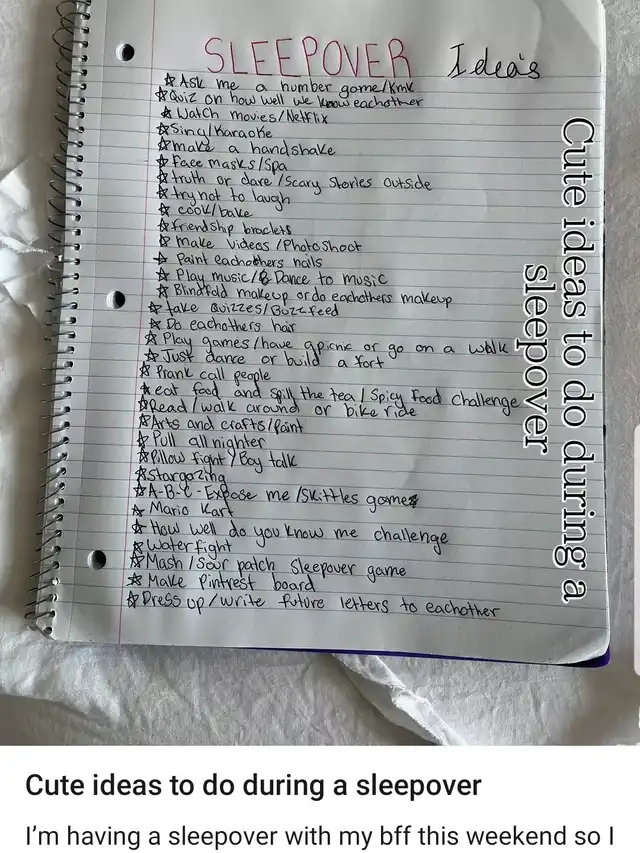 SLEEPOVER Ideas
☆ Ask me a number game/kmk
☆ Quiz on how well we know eachother
☆ Watch movies/Netflix
☆ Sing/Karaoke
☆ make a handshake
☆ Face masks/Spa
☆ truth or dare/Scary Stories outside
☆ try not to laugh
☆ cook/bake
☆ friendship braclets
☆ Make videos/Photoshoot
☆ Paint eachothers nails
☆ Play music/& Dance to music
☆ Blindfold makeup or do eachothers makeup
☆ take Quizzes/Buzzfeed
☆ Do eachothers hair
☆ Play games/have a picnic or go on a walk
☆ Just dance or build a fort
☆ Prank call people
☆ eat food and spill the tea/Spicy Food challenge
☆ Read/walk around or bike ride
☆ Arts and crafts/Paint
☆ Pull all nighter
☆ Pillow fight/Boy talk
☆ Stargazing
☆ A-B-C-Expose me/Skittles games
☆ Mario Kart
☆ How well do you know me challenge
☆ Water fight
☆ Mash/Sour patch Sleepover game
☆ Make Pintrest board
☆ Dress up/write future letters to eachother
Cute ideas to do during a
sleepover
Cute ideas to do during a sleepover
I'm having a sleepover with my bff this weekend so I